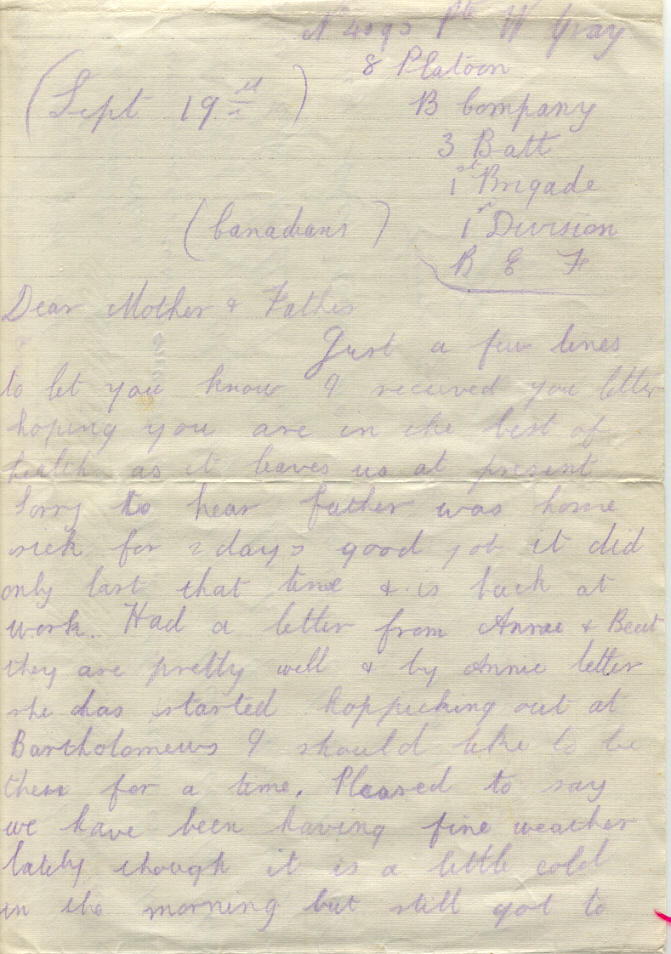 Pte W Gray
8 Platoon
(Sept 19th)
B Company
3 Batt
1st Brigade
(Canadians)
1st Division
B E F
Dear Mother & Father
Just a few lines
to let you know I received you letter
hoping you are in the best of
health as it leaves us at present
Sorry to hear father was home
sick for 2 days good job it did
only last that time & is back at
work. Had a letter from Annie & Beat
they are pretty well & by Annie letter
she has started hoppicking out at
Bartholomews I should like to be
there for a time. Pleased to say
we have been having fine weather
lately though it is a little cold
in the morning but still got to